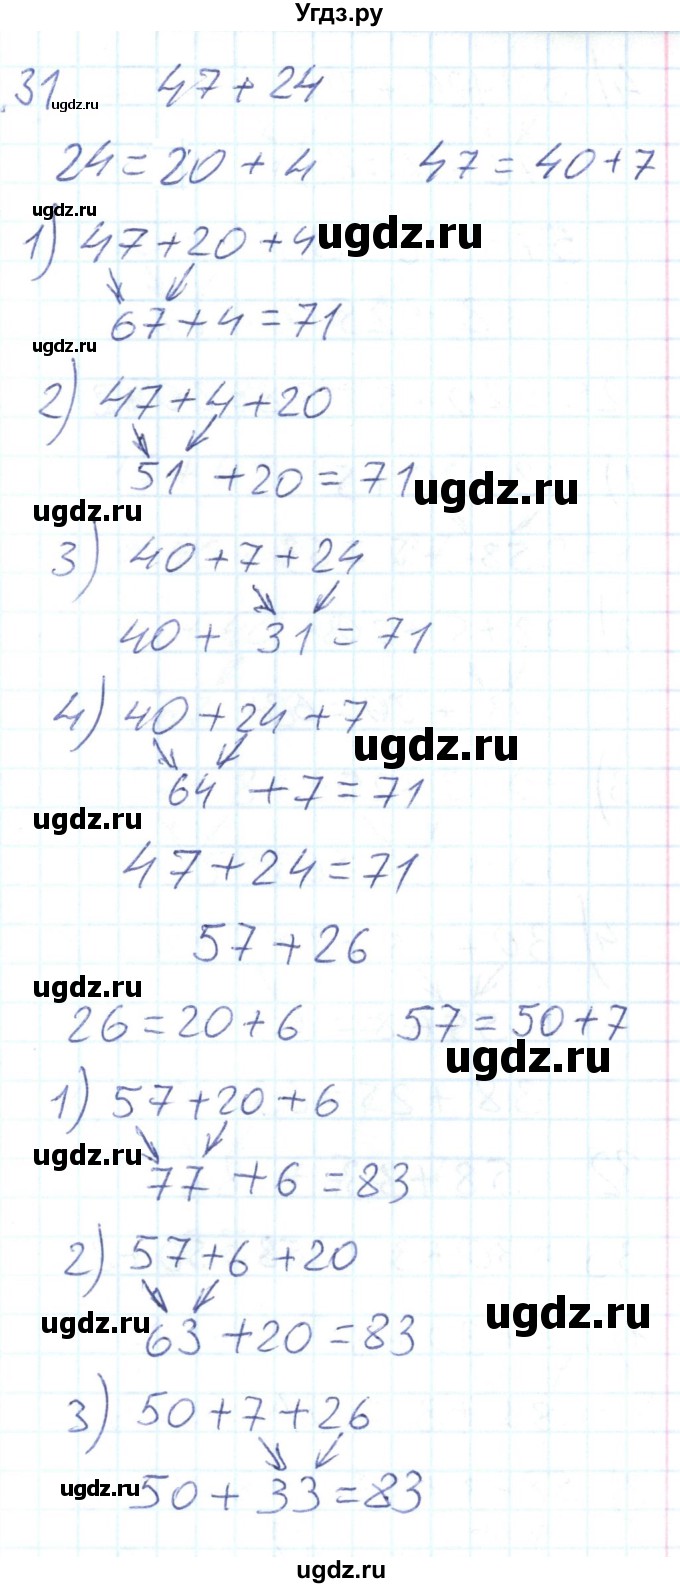 Угдз.ру
31 ugdz.ru 47 + 24
24 = 20 + 4 47 = 40 + 7
ugdz.ru
1) 47 + 20 + 4 ugdz.ru
67 + 4 = 71
ugdz.ru
2) 47 + 4 + 20
51 + 20 = 71 ugdz.ru
ugdz.ru
3) 40 + 7 + 24
40 + 31 = 71
4) 40 + 24 + 7
ugdz.ru
64 + 7 = 71
ugdz.ru
47 + 24 = 71
57 + 26
ugdz.ru
26 = 20 + 6 57 = 50 + 7
ugdz.ru
1) 57 + 20 + 6
ugdz.ru
77 + 6 = 83
2) 57 + 6 + 20
ugdz.ru
ugdz.ru 63 + 20 = 83
3) 50 + 7 + 26
ugdz.ru 50 + 33 = 83
ugdz.ru